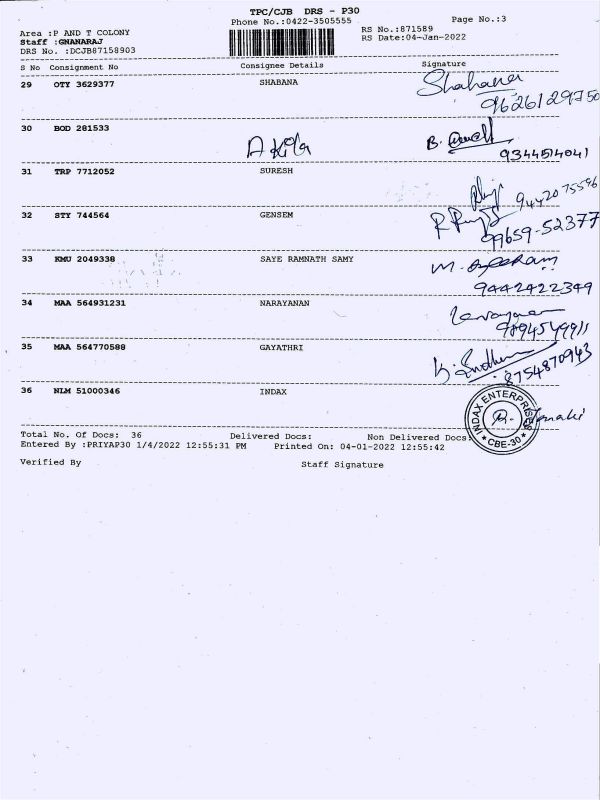 TPC/CJB DRS - P30
Phone No.:0422-3505555
Page No.:3
Area :P AND T COLONY
RS No.:871589
Staff :GNANARAJ
RS Date:04-Jan-2022
DRS No. :DCJB87158903
S No Consignment No Consignee Details Signature
29 OTY 3629377 SHABANA Shabana
9626129750
30 BOD 281533
Akila B.
9344514041
31 TRP 7712052 SURESH
9442075596
32 STY 744564 GENSEM
99659-52377
33 KMU 2049338 SAYE RAMNATH SAMY M.
9442422349
34 MAA 564931231 NARAYANAN
9894549911
35 MAA 564770588 GAYATHRI
8754870943
36 NLM 51000346 INDAX
INDAX ENTERPRISES
* CBE-30 *
Total No. Of Docs: 36 Delivered Docs: Non Delivered Docs:
Entered By :PRIYAP30 1/4/2022 12:55:31 PM Printed On: 04-01-2022 12:55:42
Verified By Staff Signature